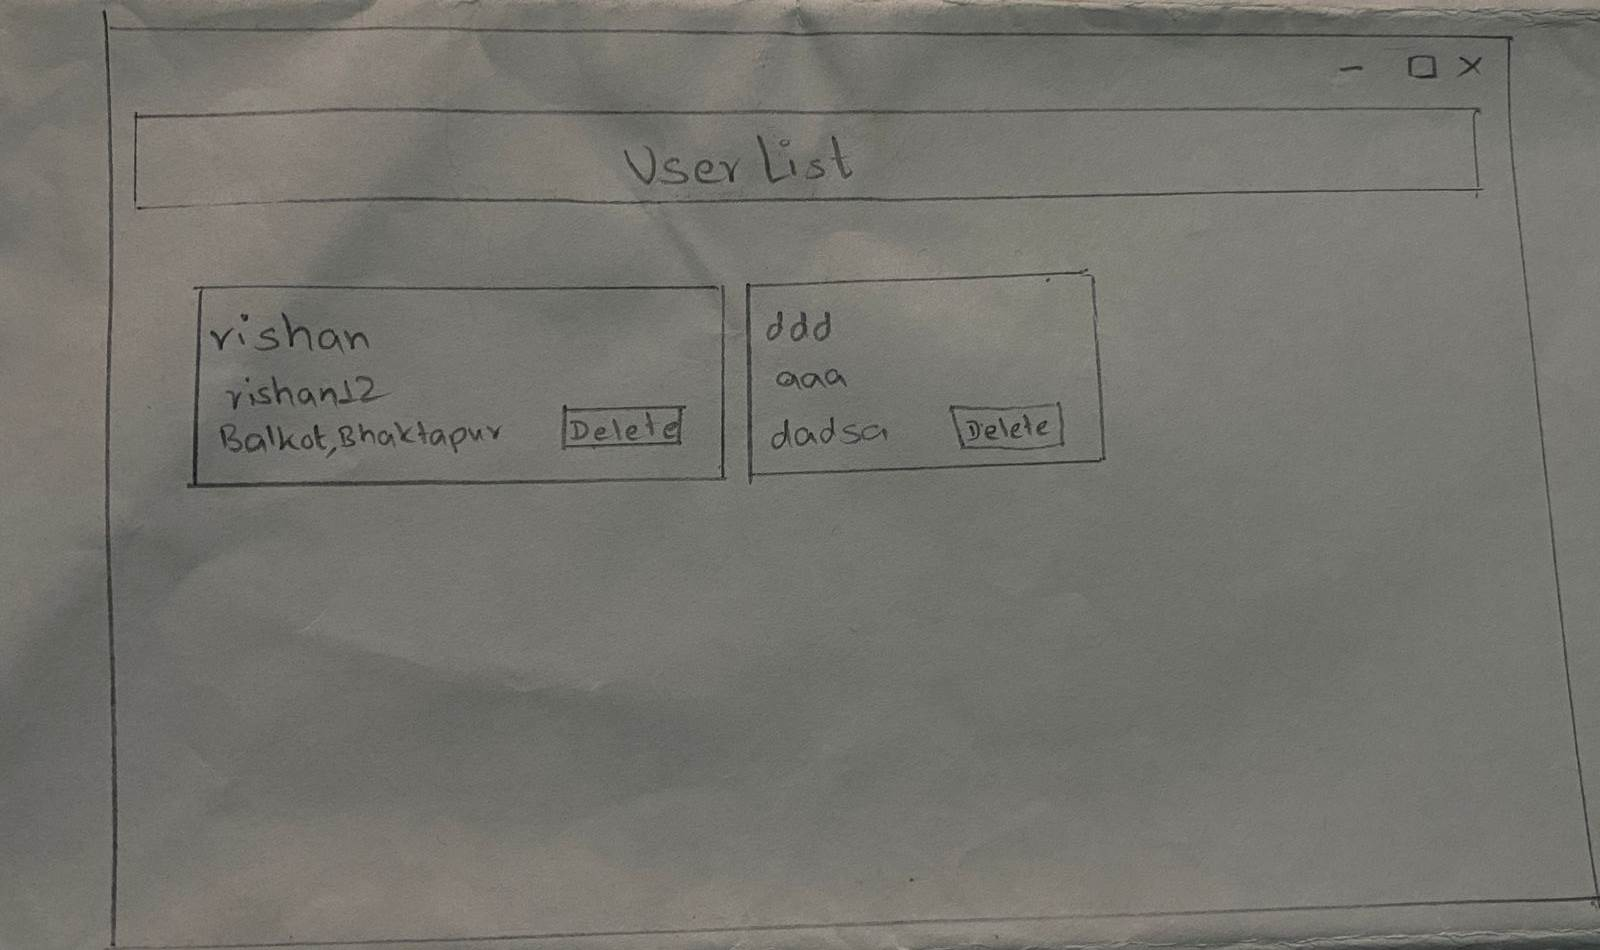 User List
rishan
rishan12
Balkot,Bhaktapur
Delete
ddd
aaa
dadsa
Delete